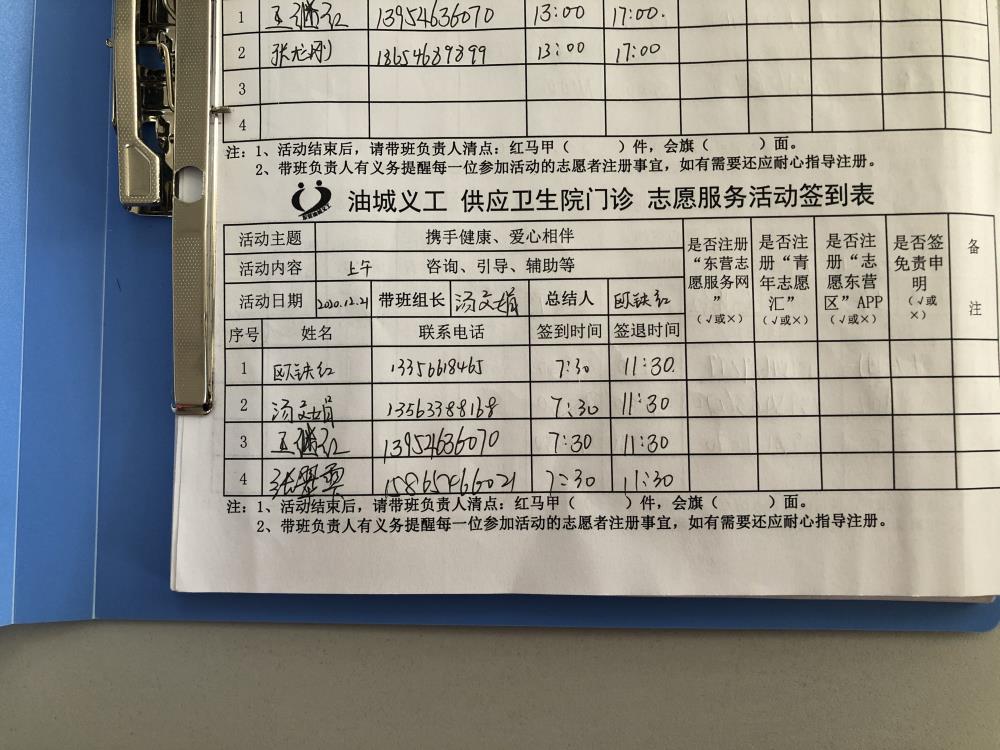 1 王继红 13954636070 13:00 17:00.
2 张龙刚 18654689899 13:00 17:00
3
4
注：1、活动结束后，请带班负责人清点：红马甲（ ）件，会旗（ ）面。
2、带班负责人有义务提醒每一位参加活动的志愿者注册事宜，如有需要还应耐心指导注册。
油城义工 供应卫生院门诊 志愿服务活动签到表
活动主题 携手健康、爱心相伴 是否注册“东营志愿服务网”（√或×） 是否注册“青年志愿汇”（√或×） 是否注册“志愿东营区”APP（√或×） 是否签免责申明（√或×） 备注
活动内容 上午 咨询、引导、辅助等
活动日期 2020.12.21 带班组长 汤文娟 总结人 欧铁红
序号 姓名 联系电话 签到时间 签退时间
1 欧铁红 13356618465 7:30 11:30.
2 汤文娟 13563388168 7:30 11:30
3 王继红 13954636070 7:30 11:30
4 张翠 15865466021 7:30 11:30
注：1、活动结束后，请带班负责人清点：红马甲（ ）件，会旗（ ）面。
2、带班负责人有义务提醒每一位参加活动的志愿者注册事宜，如有需要还应耐心指导注册。